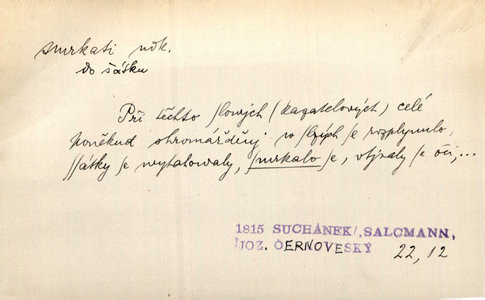 smrkati ndk.
do šátku
Při těchto slowých (kazatelových) celé
poněkud shromážděnj w slzých se rozplynulo,
ssátky se wytahowaly, smrkalo se, utjraly se oči,...
1815 SUCHÁNEK/,SALCMANN,
/JOZ. ČERNOVESKÝ 22, 12